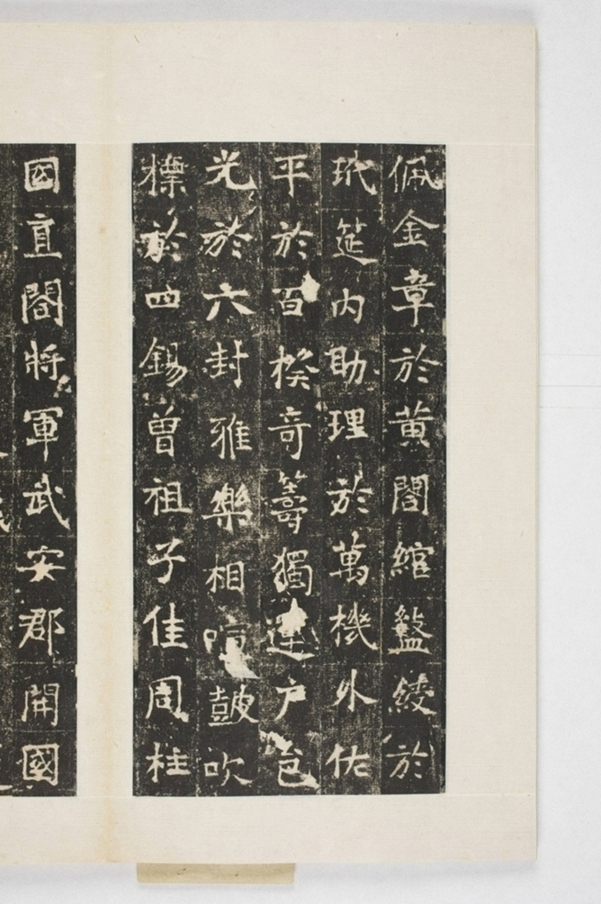 佩金章於黄閤綰盭綬於
玳筵内助理於萬機外佐
平於百揆竒籌獨運户邑
光於六封雅樂相喧皷吹
標於四錫曾祖子佳周柱
囯直閤將軍武安郡開國